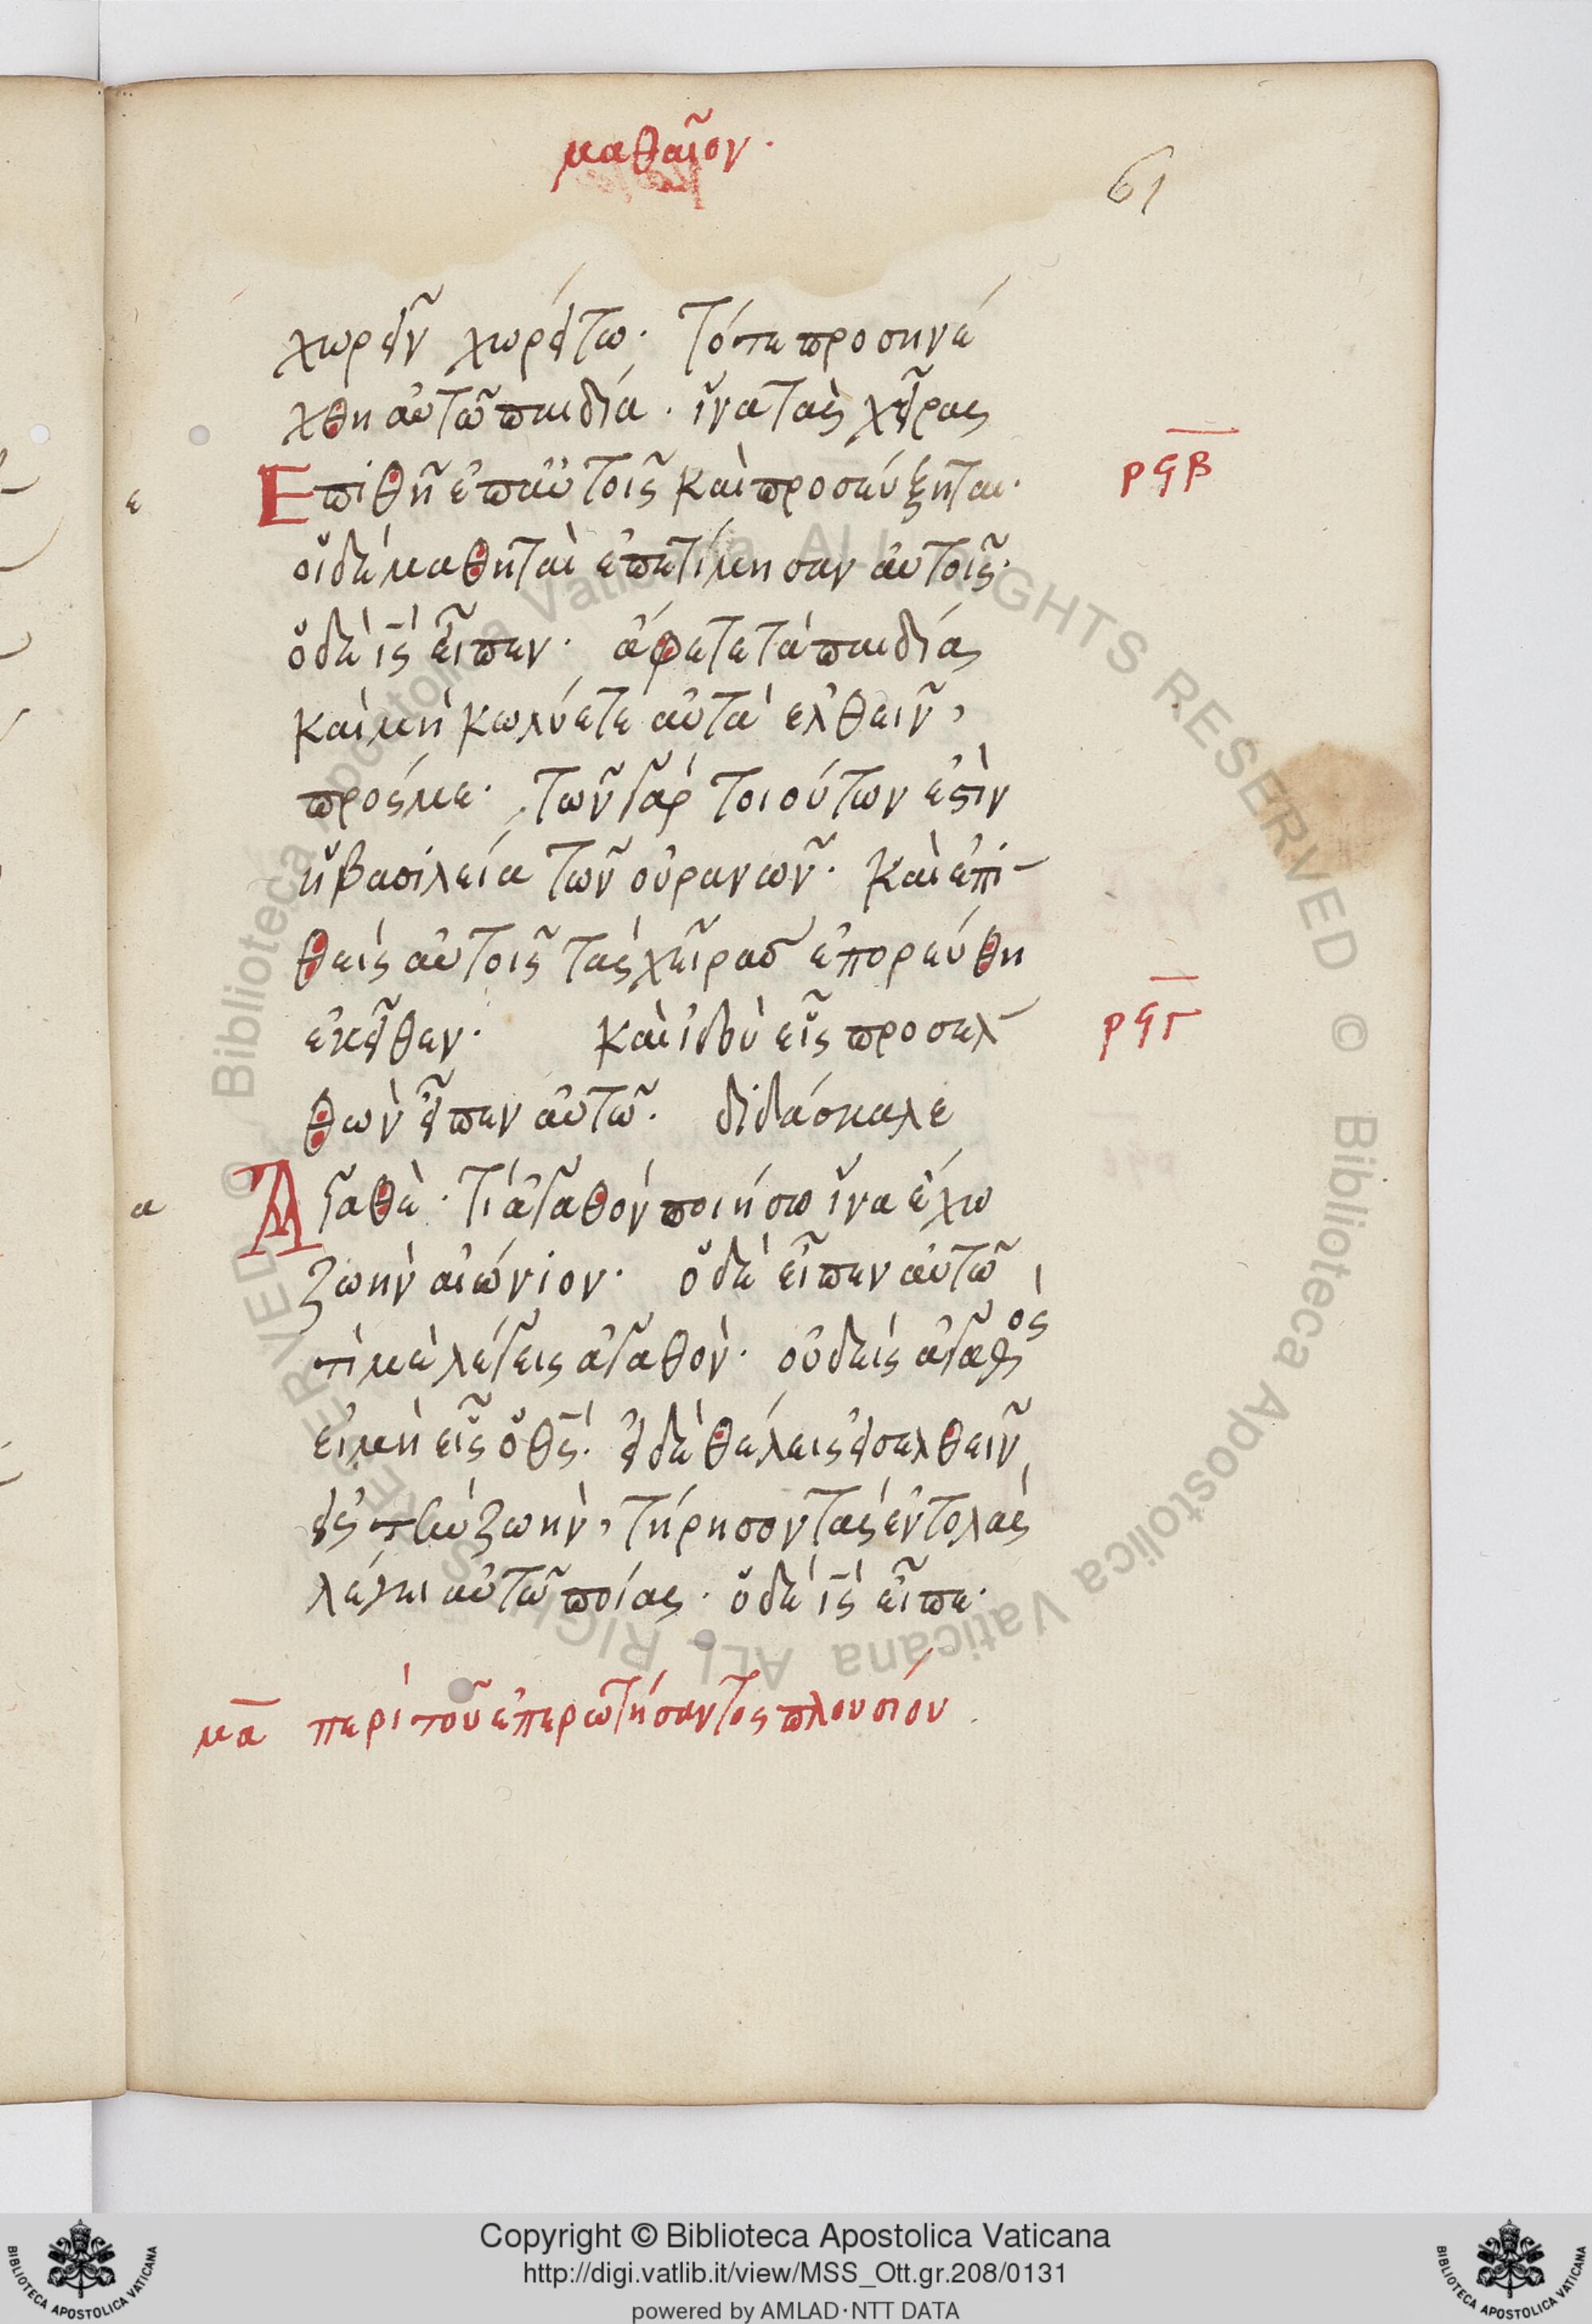 μαθαῖον·
61
χωρεῖν χωρείτω· Τότε προσηνέ
χθη αὐτῶ παιδία· ἵνα τὰς χεῖρας
ρϟβ
ε
Ἐπιθῆ ἐπαὐτοῖς καὶ προσεύξηται·
οἵ δὲ μαθηταὶ ἐπετίμησαν αὐτοῖς·
ὅ δὲ ἰς εἶπεν· ἄφετε τὰ παιδίας
καὶ μὴ κωλύετε αὐτὰ ελθεῖν,
πρός με· τῶν γὰρ τοιούτων ἐστὶν
ἥ βασιλεία τῶν οὐρανῶν· καὶ ἐπι-
θεὶς αὐτοῖς τὰς χεῖρας ἐπορεύθη
ἐκεῖθεν· καὶ ἰδοὺ εἷς προσελ-
ρϟγ
θὼν εἶπεν αὐτῶ· διδάσκαλε
α
Ἀγαθὲ· τί ἀγαθὸν ποιήσω ἵνα ἔχω
ζωὴν αἰώνιον· ὅ δὲ εἶπεν αὐτῶ
τὶ μὲ λέγεις ἀγαθὸν· οὐδεὶς ἀγαθὸς
εἰ μὴ εἷς ὅ θς· εἰ δὲ θέλεις εἰσελθεῖν
εἰς τὴν ζωὴν, τήρησον τὰς ἐντολὰς
λέγει αὐτῶ ποίας· ὅ δὲ ἰς εἶπε·
μα περὶ τοῦ ἐπερωτήσαντος πλουσίον
Copyright © Biblioteca Apostolica Vaticana
http://digi.vatlib.it/view/MSS_Ott.gr.208/0131
powered by AMLAD·NTT DATA
BIBLIOTECA APOSTOLICA VATICANA
BIBLIOTECA APOSTOLICA VATICANA
© Biblioteca Apostolica Vaticana ALL RIGHTS RESERVED © Biblioteca Apostolica Vaticana ALL RIGHTS RESERVED